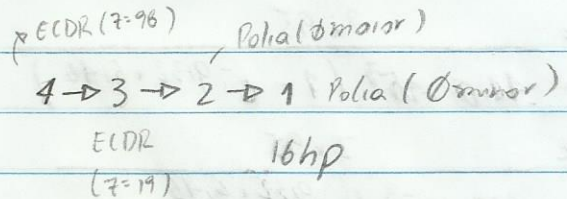 ECDR (Z=96) Polia (ϕmaior)
4 → 3 → 2 → 1 Polia (Ømenor)
ECDR 16hp
(Z=19)